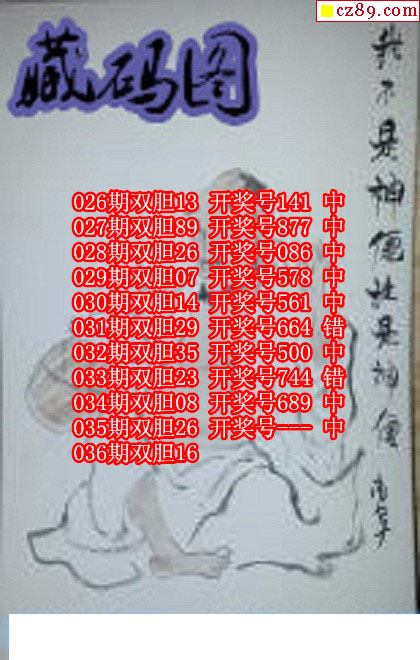 cz89.com
藏码图
我不是神 是神
026期双胆13 开奖号141 中
027期双胆89 开奖号877 中
028期双胆26 开奖号086 中
029期双胆07 开奖号578 中
030期双胆14 开奖号561 中
031期双胆29 开奖号664 错
032期双胆35 开奖号500 中
033期双胆23 开奖号744 错
034期双胆08 开奖号689 中
035期双胆26 开奖号--- 中
036期双胆16